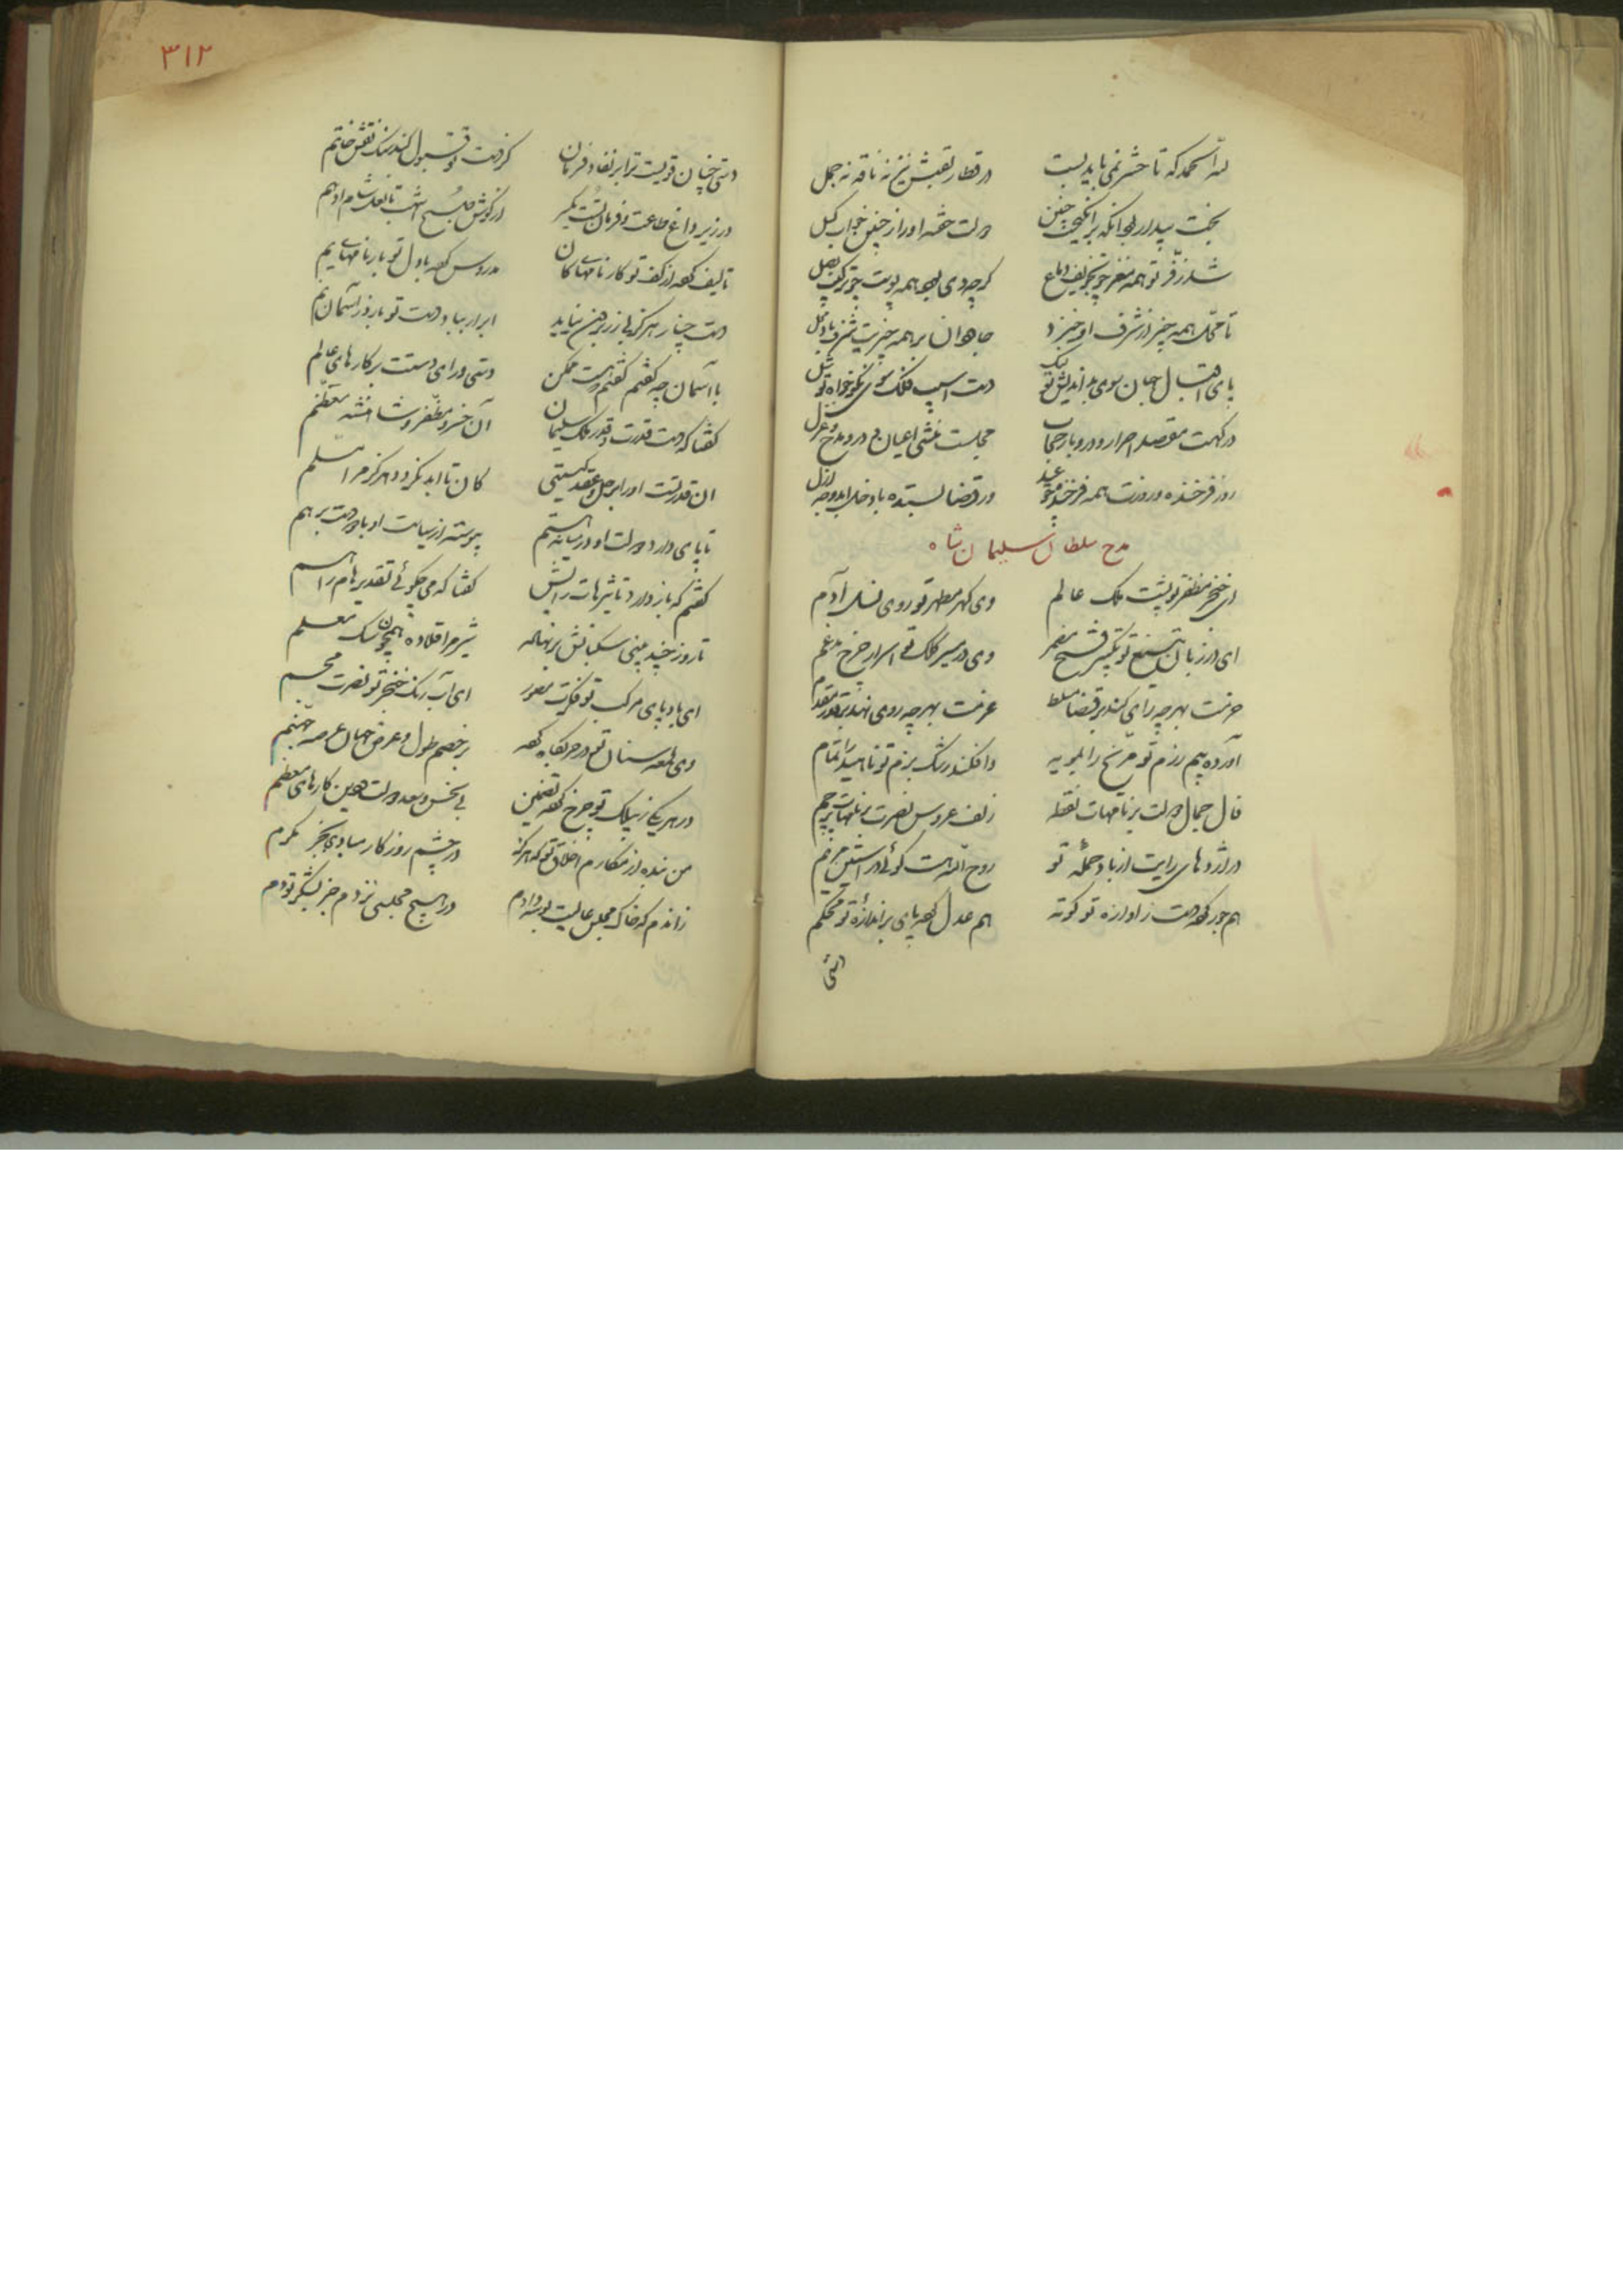 لله الحمد که تا حشر نمی باید بست در قطار تعبش نیز نه ناقه نه جمل
بخت بیدار برانگیخت چنین دولت خفته او را ز چنین خواب کسل
شد ز فر تو همه مغز چو تجویف دماغ گرچه دی بود همه پوست چو ترکیب بصل
تا محل همه چیز از شرف او خیزد جاهوان بر همه چیزیت شرف باد و محل
پای اقبال جهان سوی بداندیش تو لنگ دست آسیب فلک سوی نکوخواه تو شل
درگهت مقصد احرار و درو بار حجاب مجلست اعیان و درو مدح و غزل
روز فرخنده و روزت همه فرخنده چو عید ور قضا بستده با دخل ابد وجه ازل
مدح سلطان سلیمان شاه
ای خنجر مظفر تو پشت ملک عالم وی گهر مطهر تو روی نسل آدم
ای در زبان تیغ تو تفسیر فتح مضمر وی در مسیر کلک تو اسرار چرخ مدغم
حزمت بهر چه رای کند بر قضا مسلط عزمت بهر چه روی نهد بر قدر مقدم
آورده بیم رزم تو مریخ را بمویه وافکنده رشک بزم تو ناهید را بماتم
خال جمال دولت بر نامهات نقطه زلف عروس نصرت بر نیزهات پرچم
در اژدهای رایت از باد حمله تو روح الله است گوئی در آستین مریم
هم جور کرده دست ز آوازه تو کوته هم عدل کرده پای بر اندازه تو محکم
۳۱۲
دستی چنان قویست ترا بر نفاذ فرمان کز دست تو قبول کند سنگ نقش خاتم
در زیر داغ طاعت و فرمان تست یکسر از گوش صبح اشهب تا نعل شام ادهم
تالیف کرده از کف تو کارنامهای کان مدروس کرده با دل تو بارنامهای یم
دست چنار هرگز بی زر برون نیاید ابر ار بیاد دست تو بارد ز آسمان نم
با آسمان چه گفتم گفتم که هست ممکن دستی ورای دستت بر کارهای عالم
گفتا که دست قدرت و قدر ملک سلیمان آن خسرو مظفر و شاهنشه معظم
آن قدرتست او را بر حل و عقد گیتی کان تا ابد نگردد هرگز مرا مسلم
تا پای دارد دولت او در میانه هستم پیوسته از سیاست او با دو دست بر هم
گفتم که باز دارد تاثیرهات رایش گفتا که می چگوئی تقدیرهام را هم
تا روز چند بینی سگبانش بر نهاله شیر مرا قلاده همچون سگ معلم
ای باد پای مرکب تو فکرت مصور ای آب رنگ خنجر تو نصرت مجسم
وی لمعه سنان تو در حربگاه کرده بر خصم طول و عرض جهان عرصه جهنم
در هر یکی ز پیلک تو چرخ کرده تضمین بی نحس و سعد دولت و دین کارهای معظم
من بنده از مکارم اخلاق تو که هرگز در چشم روزگار مبادی بجز مکرم
زاندم که خاک مجلس عالیت بوسه دادم در هیچ مجلسی نزدم جز بشکر تو دم